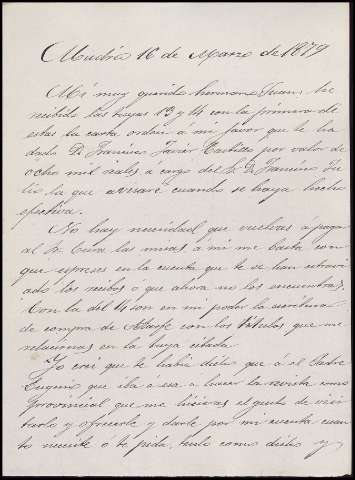 Madrid 16 de Marzo de 1879
Mi muy querido hermano Juan: he
recibido las tuyas 13 y 14 con la primera de
estas tu carta orden a mi favor que te ha
dado D. Francisco Javier Castillo por valor de
ocho mil reales á cargo del Sr. D. Francisco
la que avisaré cuando se haya hecho
efectiva.
No hay necesidad que vuelvas á pagar
al Sr. Cura las misas á mi me basta con
que espreses en la cuenta que te se han estravi
ado los recibos o que ahora no los encuentras.
Con la del 14 son en mi poder la escritura
de compra de Atarfe con los títulos que me
relacionas en la tuya citada.
Yo creí que te había dicho que á el Padre
Eugenio que iba a esa a hacer la visita como
provincial que me hicieras el gusto de visi
tarlo y ofrecerte y darle por mi cuenta cuan
to necesite o te pida, hazlo como dicho y